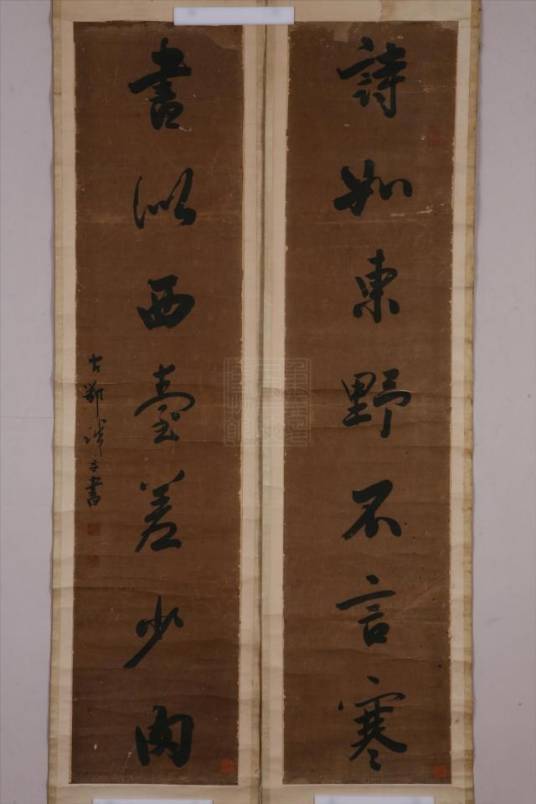 詩如東野不言寒
書似西臺差少肉